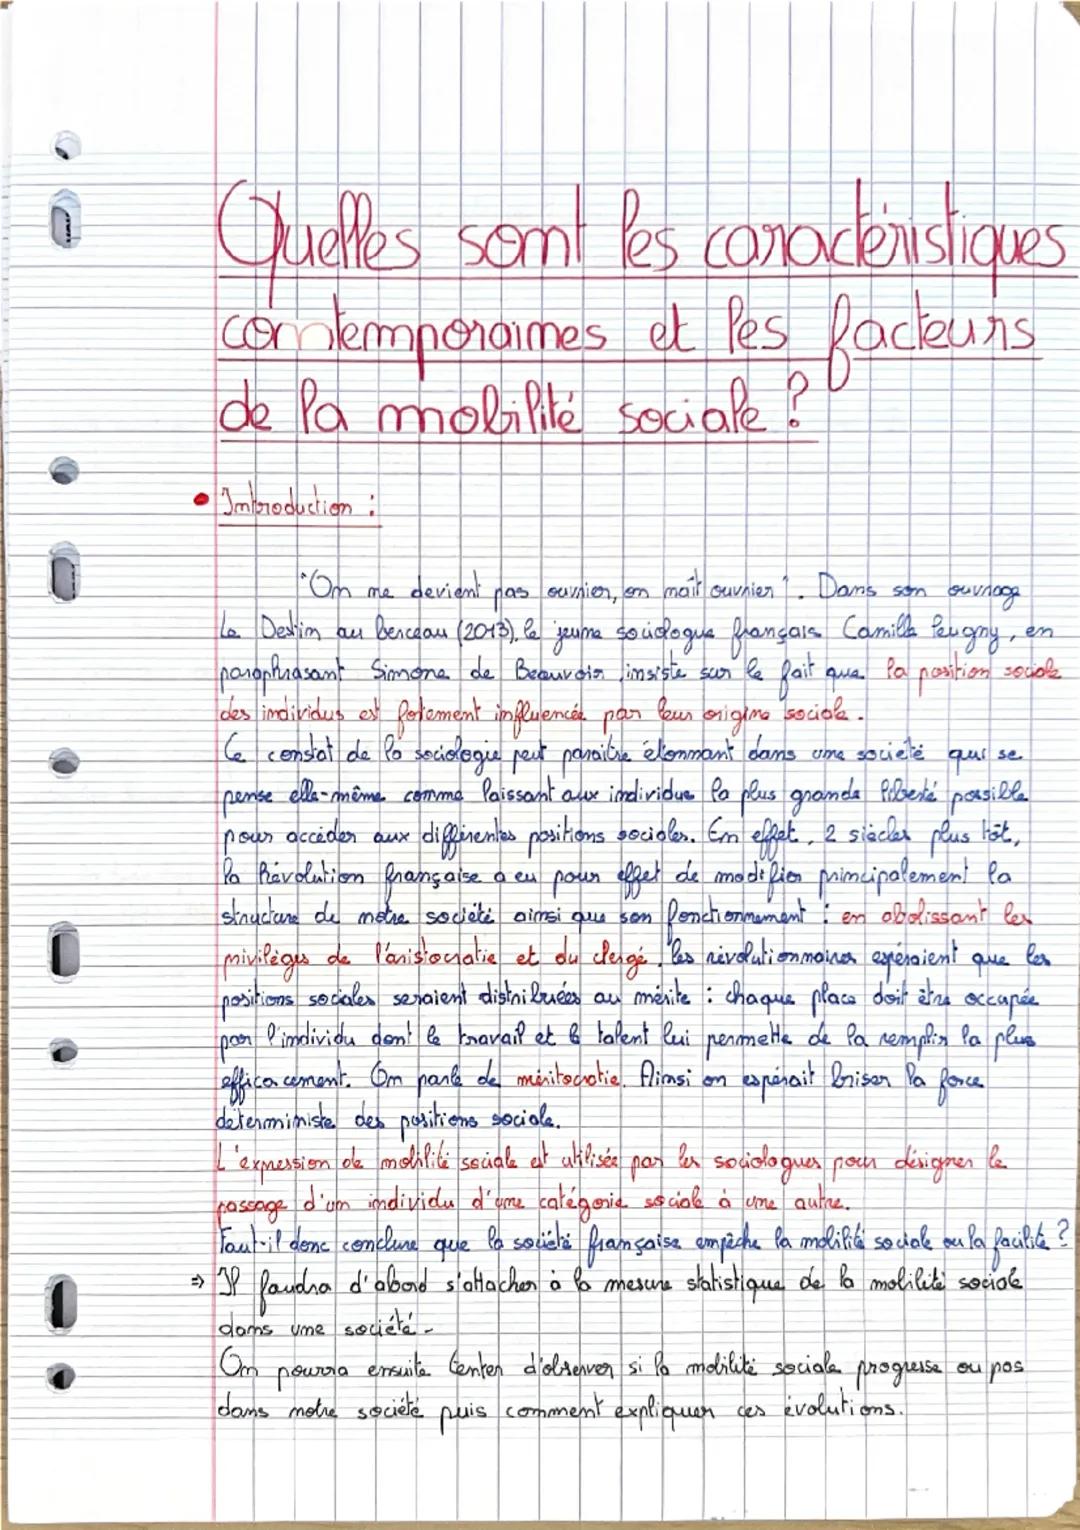 Quelles sont les caractéristiques
contemporaines et les facteurs
de la mobilité sociale ?
• Introduction :
"On ne devient pas ouvrier, on naît ouvrier". Dans son ouvrage
Le Destin au berceau (2013), le jeune sociologue français Camille Peugny, en
paraphrasant Simone de Beauvoir, insiste sur le fait que la position sociale
des individus est fortement influencée par leur origine sociale.
Ce constat de la sociologie peut paraître étonnant dans une société qui se
pense elle-même comme laissant aux individus la plus grande liberté possible
pour accéder aux différentes positions sociales. En effet, 2 siècles plus tôt,
la Révolution française a eu pour effet de modifier principalement la
structure de notre société ainsi que son fonctionnement : en abolissant les
privilèges de l'aristocratie et du clergé, les révolutionnaires espéraient que les
positions sociales seraient distribuées au mérite : chaque place doit être occupée
par l'individu dont le travail et le talent lui permette de la remplir la plus
efficacement. On parle de méritocratie. Ainsi on espérait briser la force
déterministe des positions sociale.
L'expression de mobilité sociale est utilisée par les sociologues pour désigner le
passage d'un individu d'une catégorie sociale à une autre.
Faut-il donc conclure que la société française empêche la mobilité sociale ou la facilite ?
⇒ Il faudra d'abord s'attacher à la mesure statistique de la mobilité sociale
dans une société.
On pourra ensuite tenter d'observer si la mobilité sociale progresse ou pas
dans notre société puis comment expliquer ces évolutions.